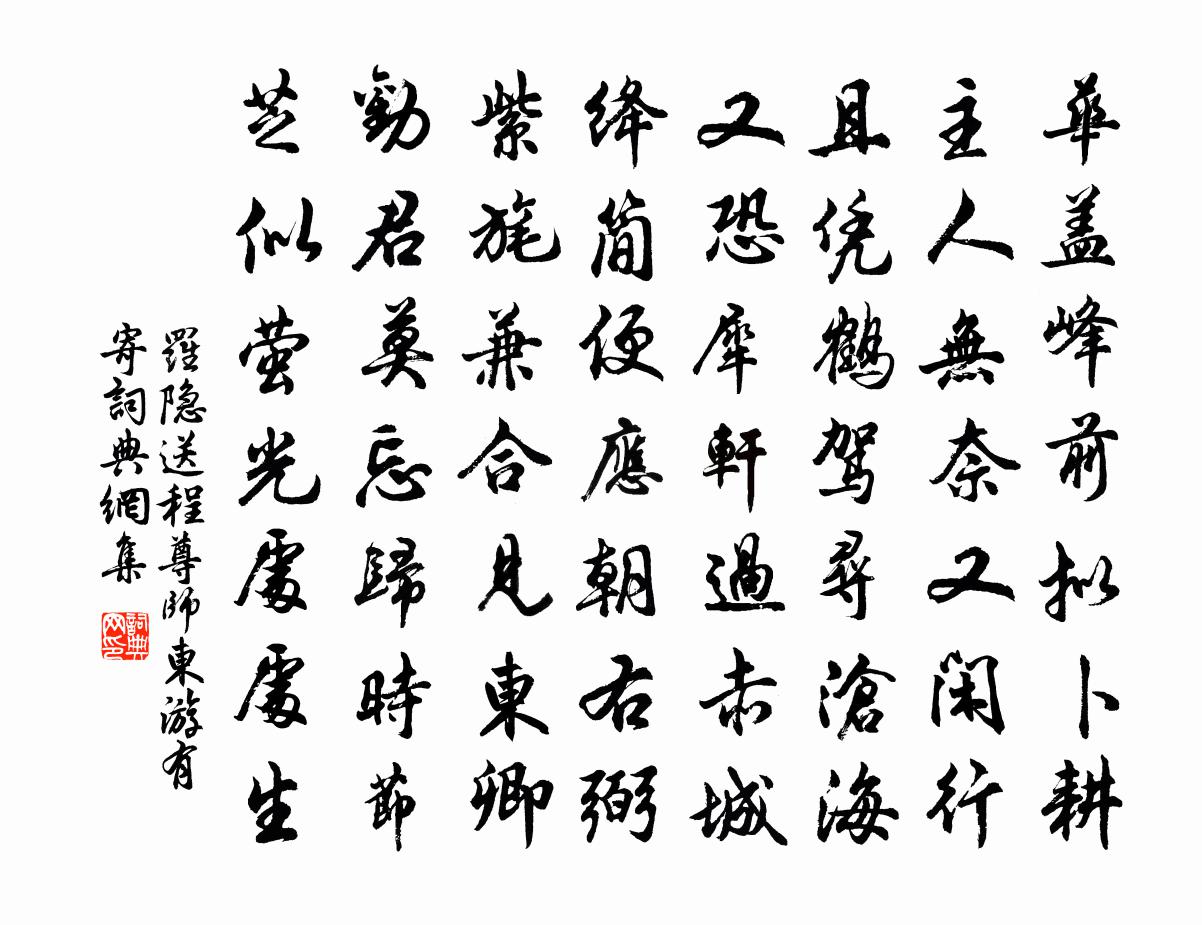 華盖峰前拟卜耕
主人無奈又闲行
且凭鶴駕尋滄海
又恐犀軒過赤城
绛简便應朝右弼
紫旄兼合見東卿
勸君莫忘歸時節
芝似萤光處處生
羅隐送程尊師東游有
寄詞典網集
詞典
网印